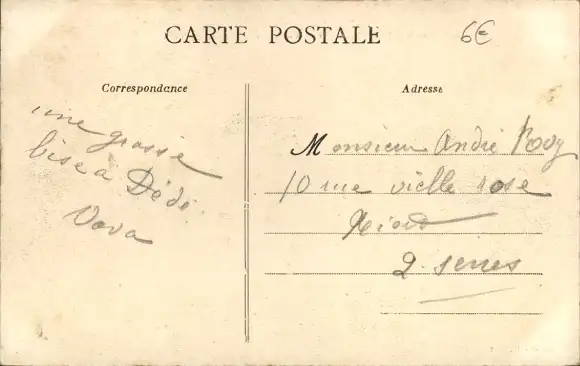 CARTE POSTALE
6€
Correspondance
Adresse
une grosse
bise à Dédé
Vova
Monsieur André Rouy
10 rue vielle rose
Niort
2. sevres